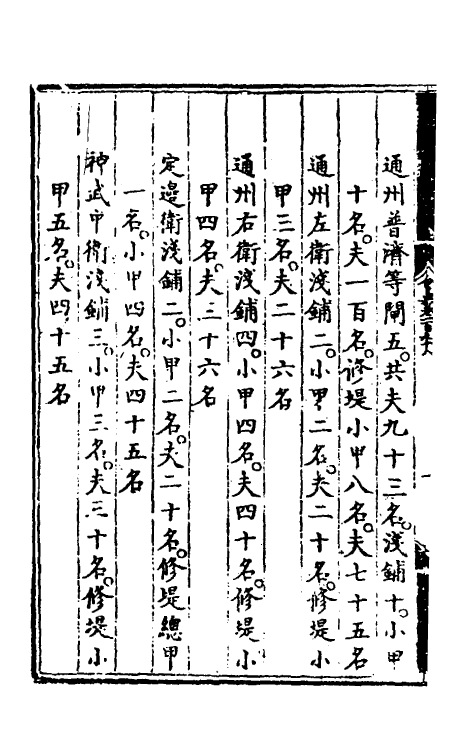 通州普濟等閘五。共夫九十三名。淺鋪十。小甲
十名。夫一百名。修堤小甲八名。夫七十五名
通州左衛淺鋪二。小甲二名。夫二十名。修堤小
甲三名。夫二十六名
通州右衛淺鋪四。小甲四名。夫四十名。修堤小
甲四名。夫三十六名
定邊衛淺鋪二。小甲二名。夫二十名。修堤總甲
一名。小甲四名。夫四十五名
神武中衛淺鋪三。小甲三名。夫三十名。修堤小
甲五名。夫四十五名